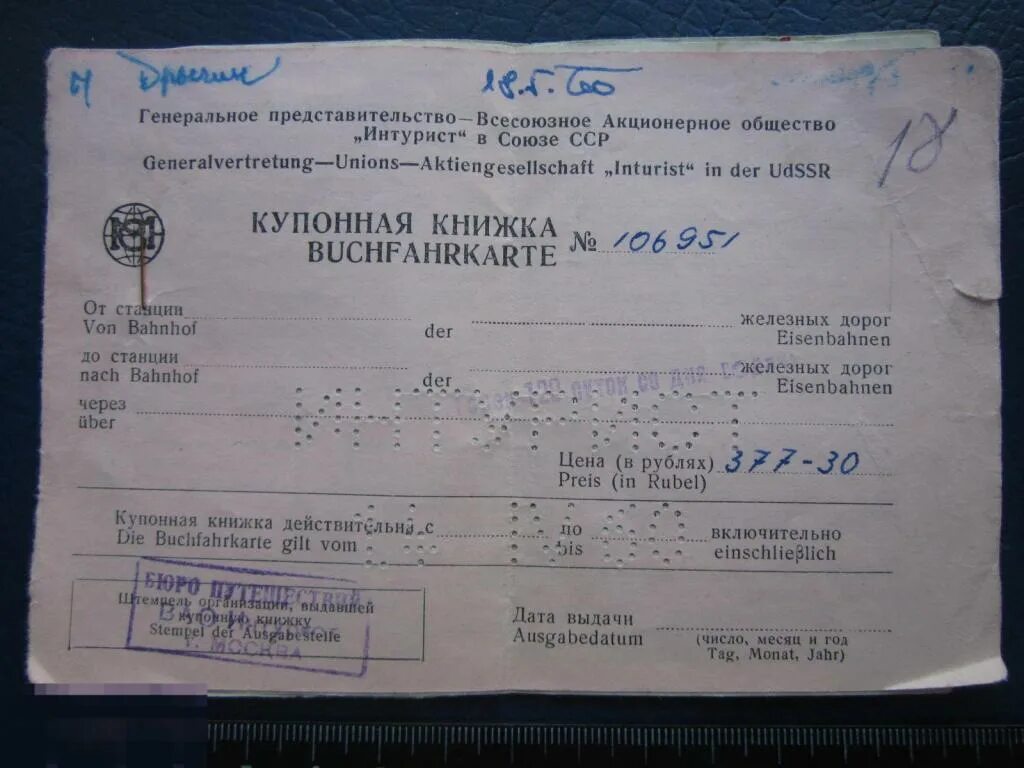 18.V.60
Генеральное представительство—Всесоюзное Акционерное общество
„Интурист“ в Союзе ССР
Generalvertretung—Unions—Aktiengesellschaft „Inturist“ in der UdSSR
18
КУПОННАЯ КНИЖКА
BUCHFAHRKARTE № 106951
От станции железных дорог
Von Bahnhof der Eisenbahnen
до станции железных дорог
nach Bahnhof der Eisenbahnen
120 суток со дня
через
über
ИНТУРИСТ
Цена (в рублях) 377-30
Preis (in Rubel)
Купонная книжка действительна с по включительно
Die Buchfahrkarte gilt vom bis einschließlich
БЮРО ПУТЕШЕСТВИЙ
Г. МОСКВА
Штемпель организации, выдавшей
купонную книжку
Stempel der Ausgabestelle
Дата выдачи
Ausgabedatum (число, месяц и год
Tag, Monat, Jahr)